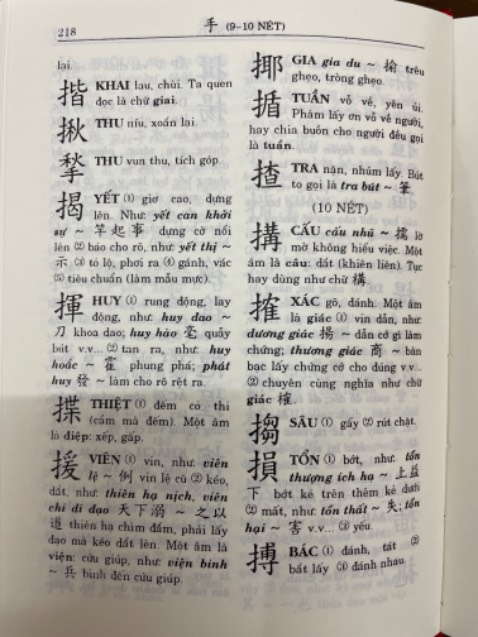 218
手 (9-10 NÉT)
lại.
揩 KHAI lau, chùi. Ta quen
đọc là chữ giai.
揪 THU níu, xoắn lại.
揫 THU vun thu, tích góp.
揭 YẾT ① giơ cao, dựng
lên. Như: yết can khởi
sự ~ 竿起事 dựng cờ nổi
lên ② báo cho rõ, như: yết thị ~
示 ③ tỏ lộ, phơi ra ④ gánh, vác
⑤ tiêu chuẩn (làm mẫu mực).
揮 HUY ① rung động, lay
động, như: huy đao ~
刀 khoa dao; huy hào 毫 quẫy
bút v.v... ② tan ra, như: huy
hoắc ~ 霍 phung phá; phát
huy 發 ~ làm cho rõ rệt ra.
揲 THIỆT ① đếm cỏ thi
(cầm mà đếm). Một âm
là diệp: xếp, gấp.
援 VIÊN ① vin, như: viên
lệ ~ 例 vin lệ cũ ② kéo,
dắt, như: thiên hạ nịch, viên
chi dĩ đạo 天下溺 ~ 之以
道 thiên hạ chìm đắm, phải lấy
đạo mà kéo dắt lên. Một âm là
viện: cứu giúp, như: viện binh
~ 兵 binh đến cứu giúp.
揶 GIA gia du ~ 揄 trêu
ghẹo, tròng ghẹo.
揗 TUẦN vỗ về, yên ủi.
Phàm lấy ơn vỗ về người,
hay chia buồn cho người đều gọi
là tuần.
揸 TRA nặn, nhúm lấy. Bút
to gọi là tra bút ~ 筆.
(10 NÉT)
搆 CẤU cấu nhũ ~ 擩 lờ
mờ không hiểu việc. Một
âm là câu: dắt (khiên liên). Tục
hay dùng như chữ 構.
搉 XÁC gõ, đánh. Một âm
là giác ① vin dẫn, như:
dương giác 揚 ~ dẫn cớ gì làm
chứng; thương giác 商 ~ bàn
bạc lấy chứng cớ cho đúng v.v...
② chuyên cùng nghĩa như chữ
giác 榷.
搊 SÂU ① gẩy ② rút chặt.
損 TỔN ① bớt, như: tổn
thượng ích hạ ~ 上益
下 bớt kẻ trên thêm kẻ dưới
② mất, như: tổn thất ~ 失; tổn
hại ~ 害 v.v... ③ yếu.
搏 BÁC ① đánh, tát ②
bắt lấy ③ đánh nhau.